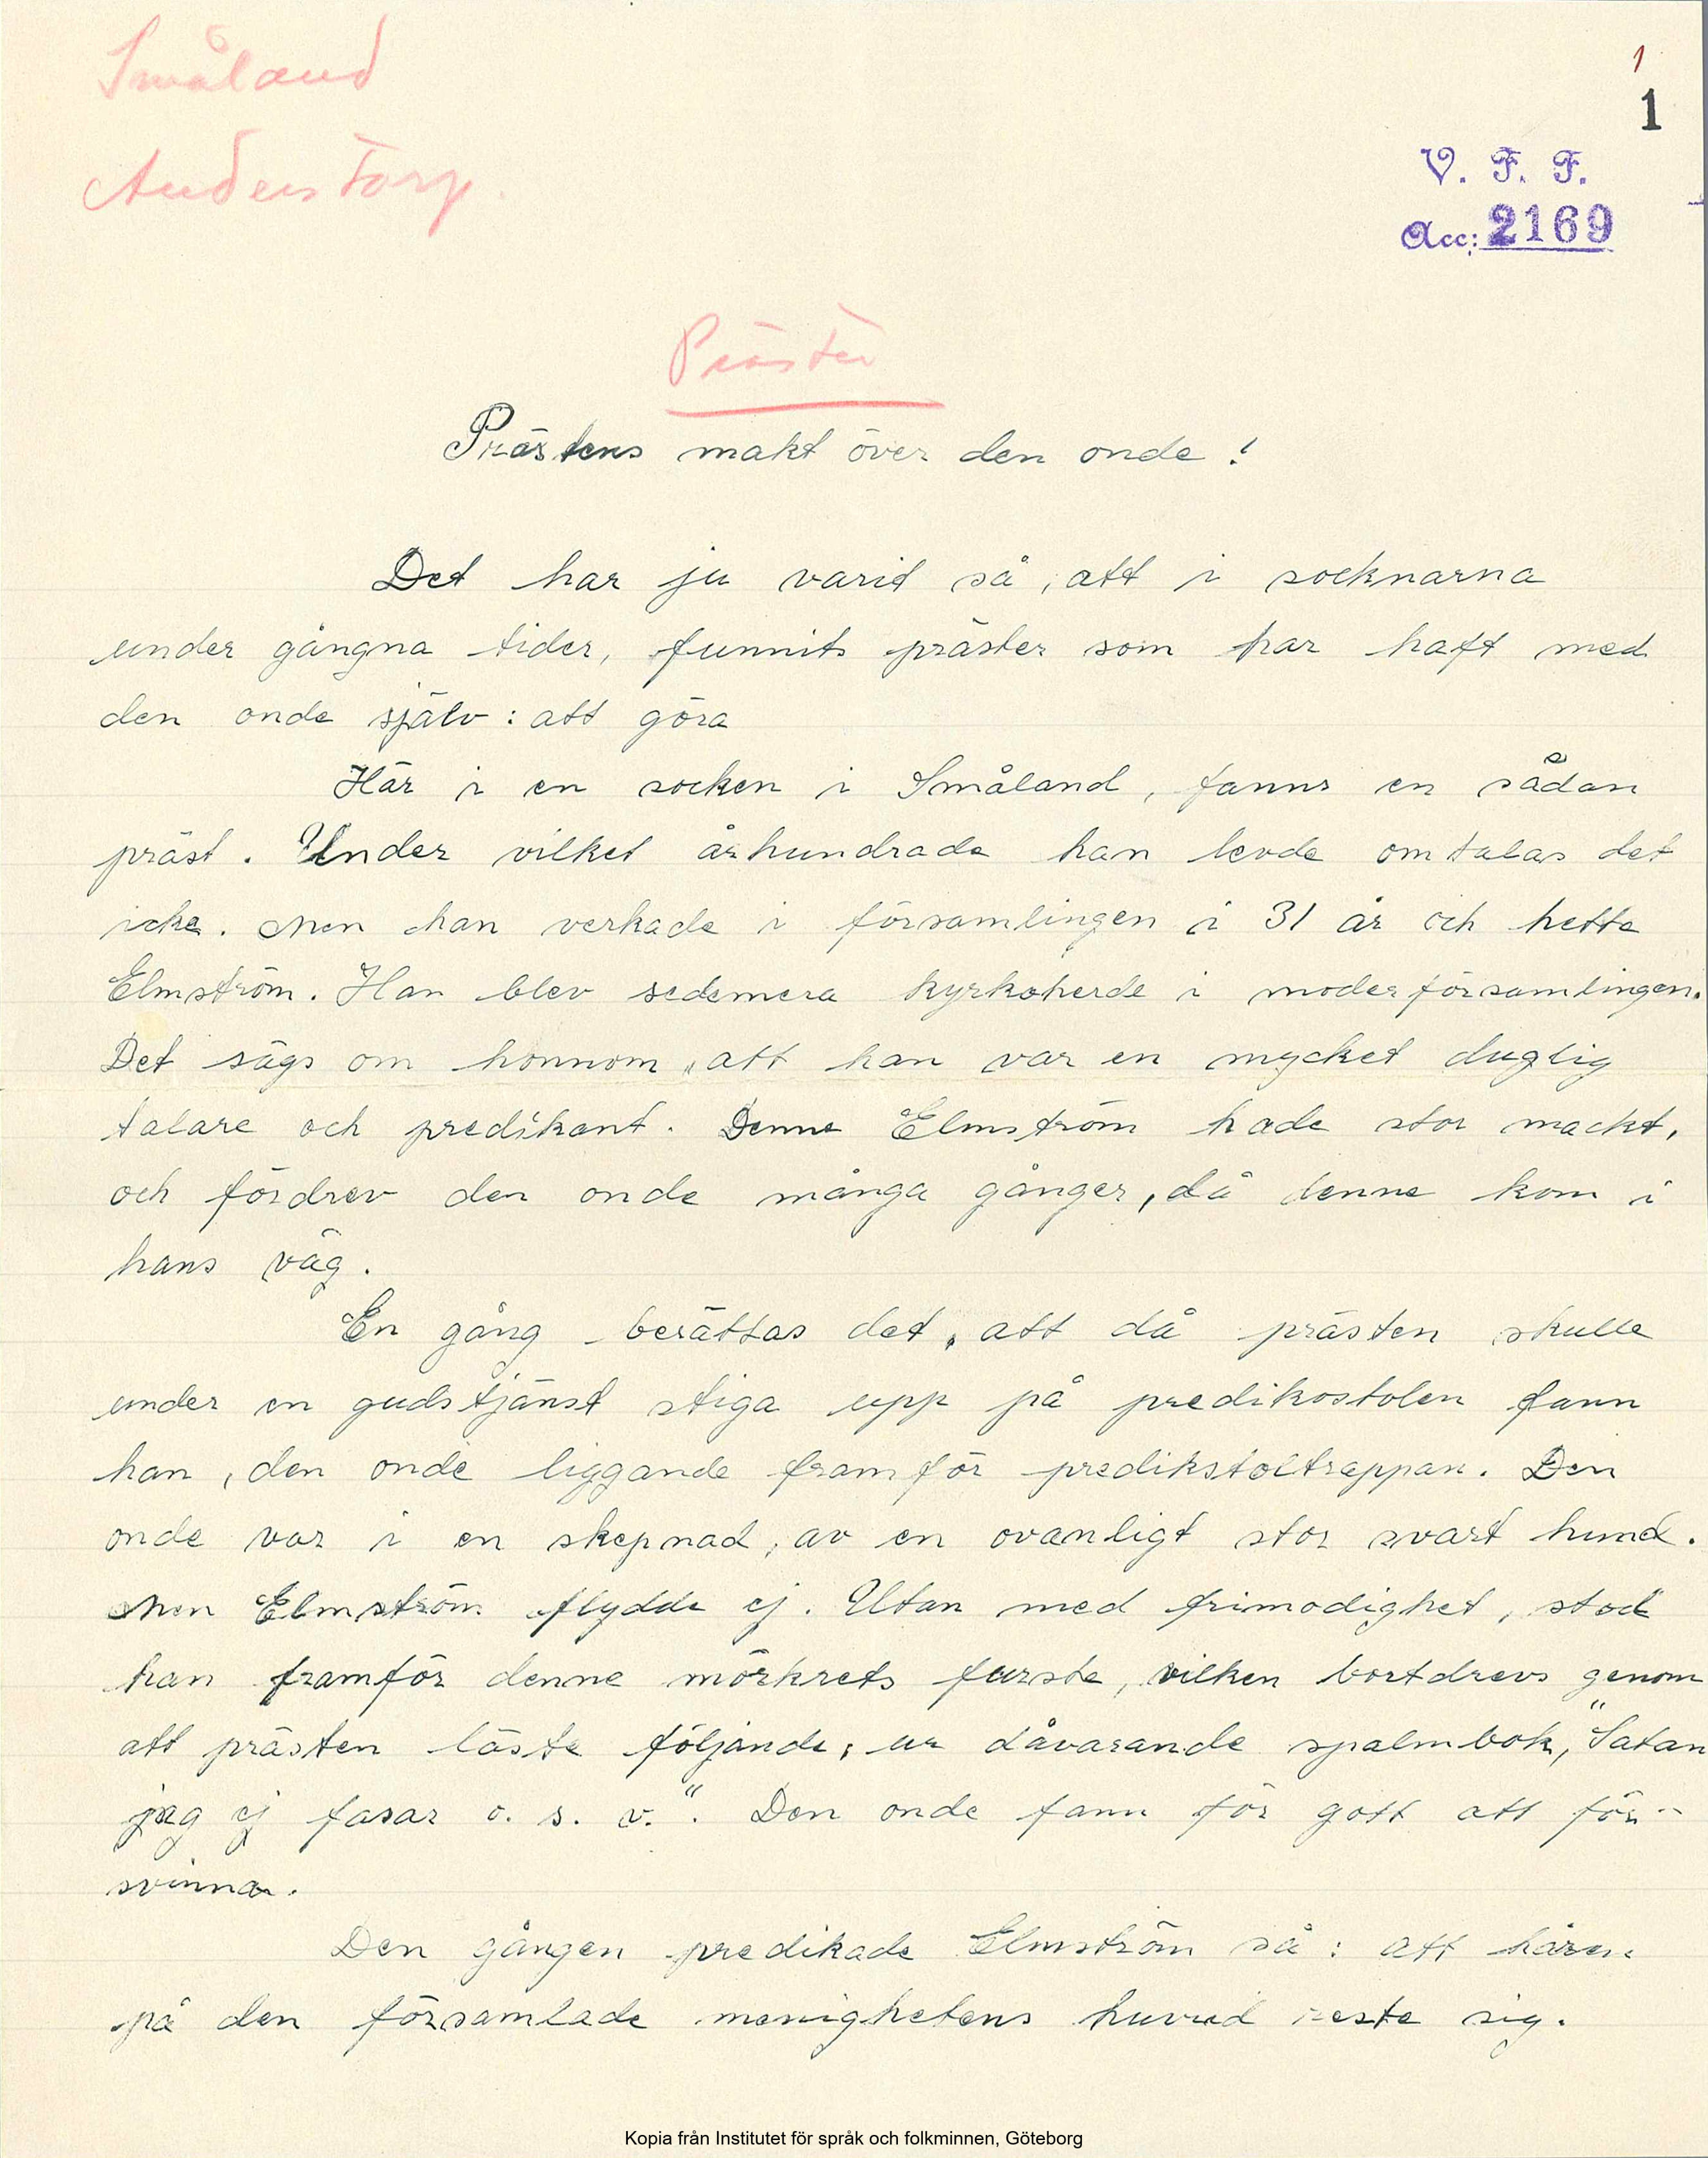 Småland
1
1
Anderstorp.
V. F. F.
Acc: 2169
Präster
Prästens makt över den onde!
Det har ju varit så, att i socknarna
under gångna tider, funnits präster som har haft med
den onde själv: att göra
Här i en socken i Småland, fanns en sådan
präst. Under vilket århundrade han levde omtalas det
icke. Men han verkade i församlingen i 31 år och hette
Elmström. Han blev sedemera kyrkoherde i moderförsamlingen.
Det sägs om honnom, att han var en mycket duglig
talare och predikant. Denne Elmström hade stor mackt,
och fördrev den onde många gånger, då denne kom i
hans väg.
En gång berättas det, att då prästen skulle
under en gudstjänst stiga upp på predikostolen fann
han, den onde liggande framför predikstoltrappan. Den
onde var i en skepnad, av en ovanligt stor svart hund.
Men Elmström flydde ej. Utan med frimodighet, stod
han framför denne mörkrets furste, vilken bortdrevs genom
att prästen läste följande; ur dåvarande spalmbok, "Satan
jag ej fasar o. s. v.". Den onde fann för gott att för-
svinna.
Den gången predikade Elmström så: att håren
på den församlade menighetens huvud reste sig.
Kopia från Institutet för språk och folkminnen, Göteborg